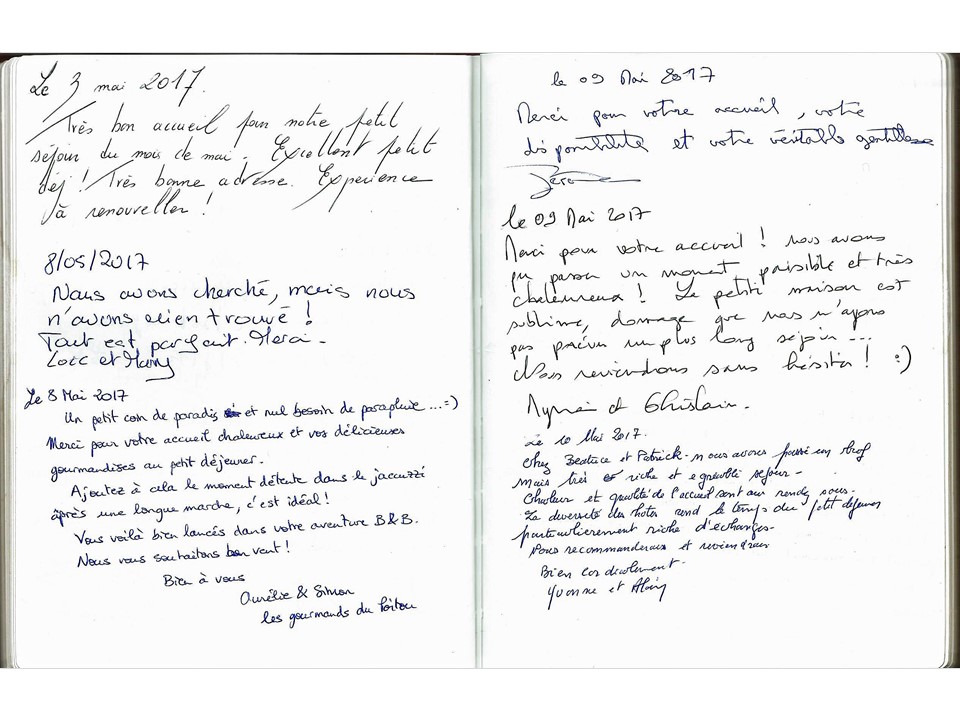 Le 3 mai 2017.
Très bon accueil pour notre petit
séjour du mois de mai. Excellent petit
déj ! Très bonne adresse. Experience
à renouveller !
8/05/2017
Nous avons cherché, mais nous
n'avons rien trouvé !
Tout est parfait. Merci -
Loïc et
Le 8 Mai 2017
Un petit coin de paradis et nul besoin de parapluie ... =)
Merci pour votre accueil chaleureux et vos délicieuses
gourmandises au petit déjeuner.
Ajoutez à cela le moment détente dans le jacuzzi
après une longue marche, c'est idéal !
Vous voilà bien lancés dans votre aventure B&B.
Nous vous souhaitons bon vent !
Bien à vous
Aurélie & Simon
les gourmands du Poitou
le 09 Mai 2017
Merci pour votre accueil, votre
disponibilité et votre véritable gentillesse
le 09 Mai 2017
Merci pour votre accueil ! nous avons
pu passer un moment paisible et très
chaleureux ! La petite maison est
sublime, dommage que nous n'ayons
pas prévu un plus long séjour ...
Nous reviendrons sans hésiter ! :)
et Ghislain.
Le 10 Mai 2017.
Chez Beatrice et Patrick. nous avons passé un bref
mais très riche et agréable séjour -
Chaleur et qualité de l'accueil sont au rendez vous.
La diversité des hotes rend le temps du petit déjeuner
particulièrement riche d'échanges.
Nous recommanderons et reviendrons
Bien cordialement -
Yvonne et Alain